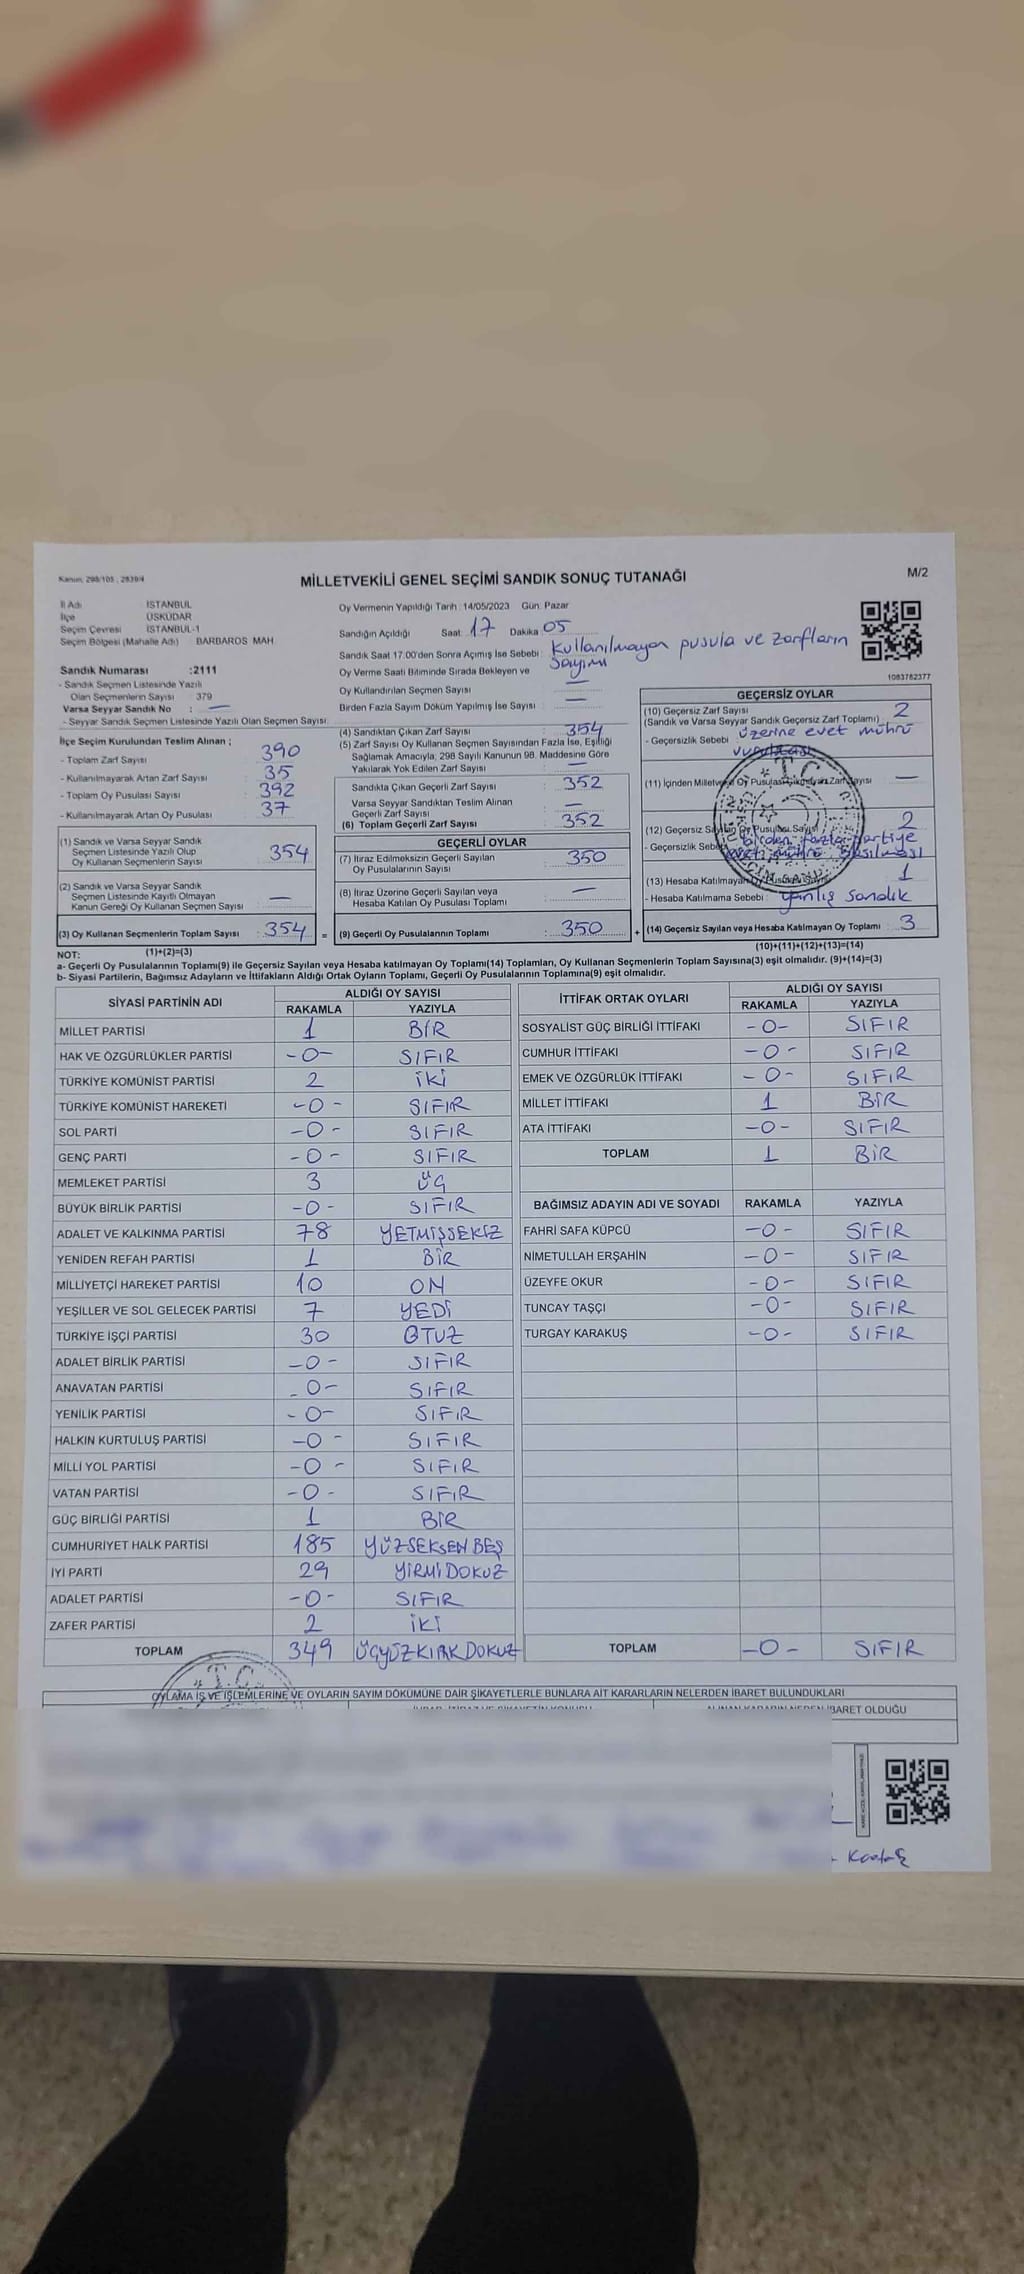 Kanun: 298/105 , 2839/4
MİLLETVEKİLİ GENEL SEÇİMİ SANDIK SONUÇ TUTANAĞI
M/2
İl Adı İSTANBUL
İlçe ÜSKÜDAR
Seçim Çevresi İSTANBUL-1
Seçim Bölgesi (Mahalle Adı) BARBAROS MAH.
Oy Vermenin Yapıldığı Tarih: 14/05/2023 Gün: Pazar
Sandığın Açıldığı Saat: 17 Dakika 05
Sandık Saat 17:00'den Sonra Açımış İse Sebebi: Kullanılmayan pusula ve zarfların sayımı
1083782377
Sandık Numarası :2111
- Sandık Seçmen Listesinde Yazılı
Olan Seçmenlerin Sayısı 379
Varsa Seyyar Sandık No : —
- Seyyar Sandık Seçmen Listesinde Yazılı Olan Seçmen Sayısı:
Oy Verme Saati Bitiminde Sırada Bekleyen ve
Oy Kullandırılan Seçmen Sayısı —
Birden Fazla Sayım Döküm Yapılmış İse Sayısı : —
İlçe Seçim Kurulundan Teslim Alınan ;
- Toplam Zarf Sayısı : 390
- Kullanılmayarak Artan Zarf Sayısı : 35
- Toplam Oy Pusulası Sayısı : 392
- Kullanılmayarak Artan Oy Pusulası : 37
(1) Sandık ve Varsa Seyyar Sandık
Seçmen Listesinde Yazılı Olup
Oy Kullanan Seçmenlerin Sayısı : 354
(2) Sandık ve Varsa Seyyar Sandık
Seçmen Listesinde Kayıtlı Olmayan
Kanun Gereği Oy Kullanan Seçmen Sayısı : —
(3) Oy Kullanan Seçmenlerin Toplam Sayısı : 354
(1)+(2)=(3)
(4) Sandıktan Çıkan Zarf Sayısı : 354
(5) Zarf Sayısı Oy Kullanan Seçmen Sayısından Fazla İse, Eşitliği
Sağlamak Amacıyla, 298 Sayılı Kanunun 98. Maddesine Göre
Yakılarak Yok Edilen Zarf Sayısı : —
Sandıkta Çıkan Geçerli Zarf Sayısı : 352
Varsa Seyyar Sandıktan Teslim Alınan
Geçerli Zarf Sayısı : —
(6) Toplam Geçerli Zarf Sayısı : 352
GEÇERLİ OYLAR
(7) İtiraz Edilmeksizin Geçerli Sayılan
Oy Pusulalarının Sayısı : 350
(8) İtiraz Üzerine Geçerli Sayılan veya
Hesaba Katılan Oy Pusulası Toplamı : —
= (9) Geçerli Oy Pusulalarının Toplamı : 350
GEÇERSİZ OYLAR
(10) Geçersiz Zarf Sayısı
(Sandık ve Varsa Seyyar Sandık Geçersiz Zarf Toplamı) : 2
- Geçersizlik Sebebi : üzerine evet mührü
vurulması
(11) İçinden Milletvekili Oy Pusulası Çıkmayan Zarf Sayısı —
(12) Geçersiz Sayılan Oy Pusulası Sayısı 2
- Geçersizlik Sebebi birden fazla partiye
evet mührü basılması
(13) Hesaba Katılmayan Oy Pusulası Sayısı 1
- Hesaba Katılmama Sebebi : yanlış sandık
+ (14) Geçersiz Sayılan veya Hesaba Katılmayan Oy Toplamı : 3
(10)+(11)+(12)+(13)=(14)
NOT:
a- Geçerli Oy Pusulalarının Toplamı(9) ile Geçersiz Sayılan veya Hesaba katılmayan Oy Toplamı(14) Toplamları, Oy Kullanan Seçmenlerin Toplam Sayısına(3) eşit olmalıdır. (9)+(14)=(3)
b- Siyasi Partilerin, Bağımsız Adayların ve İttifakların Aldığı Ortak Oyların Toplamı, Geçerli Oy Pusulalarının Toplamına(9) eşit olmalıdır.
SİYASİ PARTİNİN ADI ALDIĞI OY SAYISI
RAKAMLA YAZIYLA
MİLLET PARTİSİ 1 BİR
HAK VE ÖZGÜRLÜKLER PARTİSİ -0- SIFIR
TÜRKİYE KOMÜNİST PARTİSİ 2 İKİ
TÜRKİYE KOMÜNİST HAREKETİ -0- SIFIR
SOL PARTİ -0- SIFIR
GENÇ PARTİ -0- SIFIR
MEMLEKET PARTİSİ 3 ÜÇ
BÜYÜK BİRLİK PARTİSİ -0- SIFIR
ADALET VE KALKINMA PARTİSİ 78 YETMİŞSEKİZ
YENİDEN REFAH PARTİSİ 1 BİR
MİLLİYETÇİ HAREKET PARTİSİ 10 ON
YEŞİLLER VE SOL GELECEK PARTİSİ 7 YEDİ
TÜRKİYE İŞÇİ PARTİSİ 30 OTUZ
ADALET BİRLİK PARTİSİ -0- SIFIR
ANAVATAN PARTİSİ -0- SIFIR
YENİLİK PARTİSİ -0- SIFIR
HALKIN KURTULUŞ PARTİSİ -0- SIFIR
MİLLİ YOL PARTİSİ -0- SIFIR
VATAN PARTİSİ -0- SIFIR
GÜÇ BİRLİĞİ PARTİSİ 1 BİR
CUMHURİYET HALK PARTİSİ 185 YÜZSEKSEN BEŞ
İYİ PARTİ 29 YİRMİ DOKUZ
ADALET PARTİSİ -0- SIFIR
ZAFER PARTİSİ 2 İKİ
TOPLAM 349 ÜÇYÜZKIRK DOKUZ
İTTİFAK ORTAK OYLARI ALDIĞI OY SAYISI
RAKAMLA YAZIYLA
SOSYALİST GÜÇ BİRLİĞİ İTTİFAKI -0- SIFIR
CUMHUR İTTİFAKI -0- SIFIR
EMEK VE ÖZGÜRLÜK İTTİFAKI -0- SIFIR
MİLLET İTTİFAKI 1 BİR
ATA İTTİFAKI -0- SIFIR
TOPLAM 1 BİR
BAĞIMSIZ ADAYIN ADI VE SOYADI RAKAMLA YAZIYLA
FAHRİ SAFA KÜPCÜ -0- SIFIR
NİMETULLAH ERŞAHİN -0- SIFIR
ÜZEYFE OKUR -0- SIFIR
TUNCAY TAŞÇI -0- SIFIR
TURGAY KARAKUŞ -0- SIFIR
TOPLAM -0- SIFIR
T.C.
OYLAMA İŞ VE İŞLEMLERİNE VE OYLARIN SAYIM DÖKÜMÜNE DAİR ŞİKAYETLERLE BUNLARA AİT KARARLARIN NELERDEN İBARET BULUNDUKLARI
ALINAN KARARIN NEDEN İBARET OLDUĞU